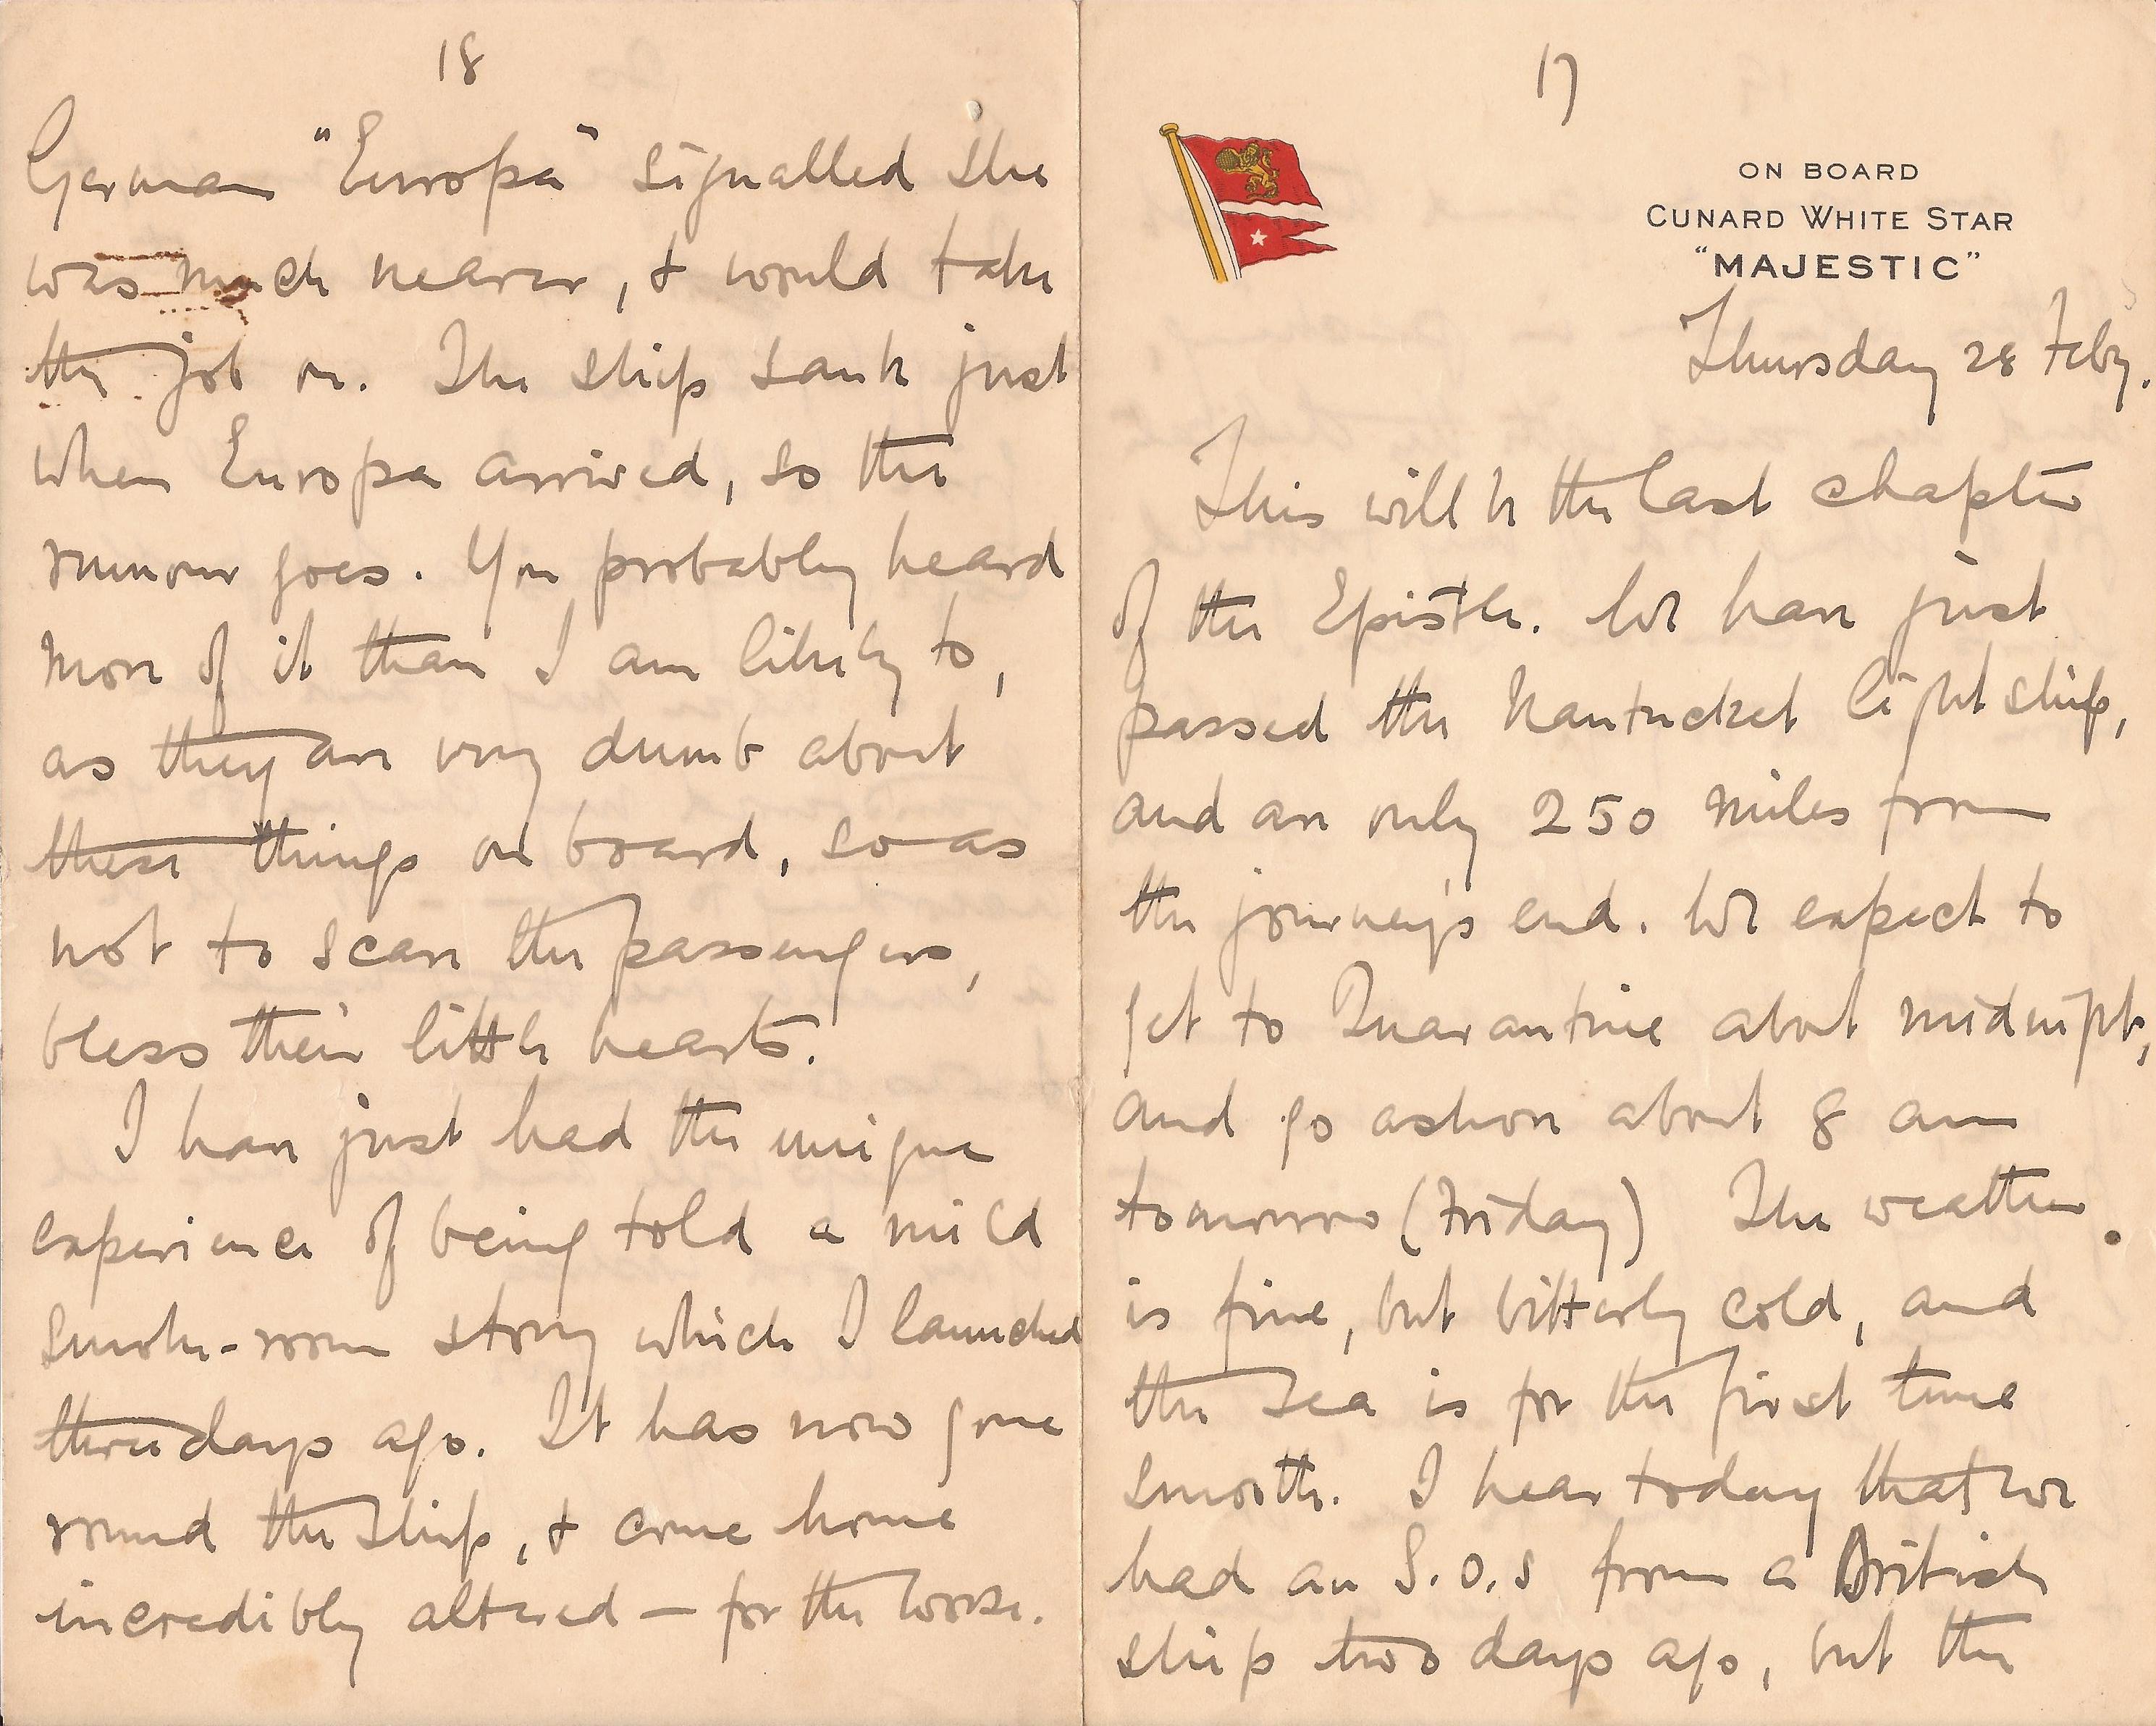 17
ON BOARD
CUNARD WHITE STAR
"MAJESTIC"
Thursday 28 Feby.
This will be the last chapter
of the Epistle. We have just
passed the Nantucket light ship,
and are only 250 miles from
the journey's end. We expect to
get to Quarantine about midnight,
and go ashore about 8 am
tomorrow (Friday) The weather.
is fine, but bitterly cold, and
the sea is for the first time
smooth. I hear today that we
had an S.O.S from a British
ship two days ago, but the
18
German "Europa" signalled she
was much nearer, & would take
the job on. The ship sank just
when Europa arrived, so the
rumour goes. You probably heard
more of it than I am likely to,
as they are very dumb about
these things on board, so as
not to scare the passengers,
bless their little hearts.
I have just had the unique
experience of being told a mild
smoke-room story which I launched
three days ago. It has now gone
round the ship, & come home
incredibly altered — for the worse.